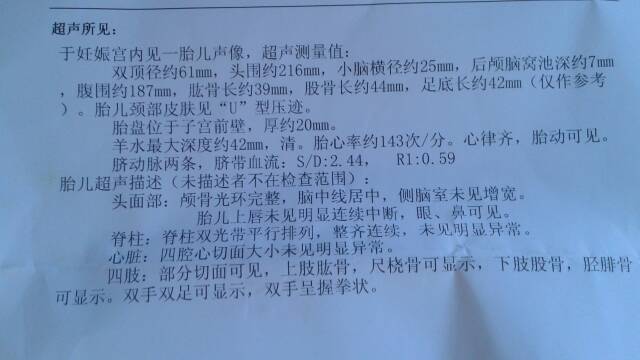 超声所见:
于妊娠宫内见一胎儿声像，超声测量值:
双顶径约61mm，头围约216mm，小脑横径约25mm，后颅脑窝池深约7mm
，腹围约187mm，肱骨长约39mm，股骨长约44mm，足底长约42mm（仅作参考
）。胎儿颈部皮肤见“U”型压迹。
胎盘位于子宫前壁，厚约20mm。
羊水最大深度约42mm，清。胎心率约143次/分。心律齐，胎动可见。
脐动脉两条，脐带血流: S/D:2.44， R1:0.59
胎儿超声描述（未描述者不在检查范围）:
头面部: 颅骨光环完整，脑中线居中，侧脑室未见增宽。
胎儿上唇未见明显连续中断，眼、鼻可见。
脊柱: 脊柱双光带平行排列，整齐连续，未见明显异常。
心脏: 四腔心切面大小未见明显异常。
四肢: 部分切面可见，上肢肱骨，尺桡骨可显示，下肢股骨，胫腓骨
可显示。双手双足可显示，双手呈握拳状。